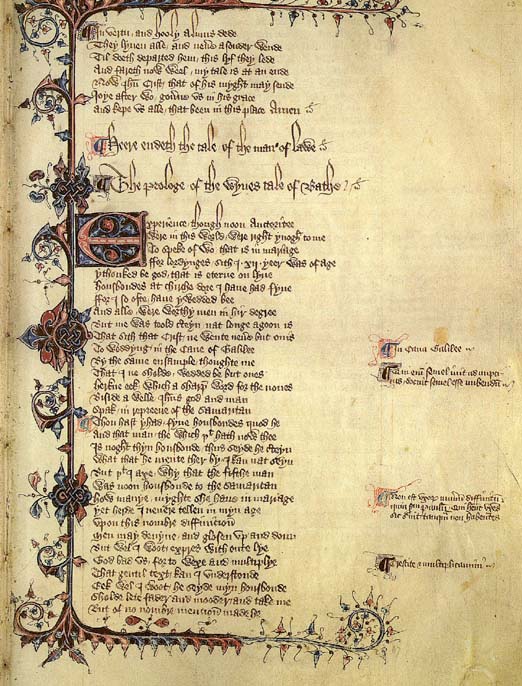 In vertu and hooly almus dede
They lyuen alle and neuer asonder wende
Til deeth departed hem this lyf they lede
And fareth now weel my tale is at an ende
Now Jhu Crist that of his myght may sende
Joye after wo gouerne vs in his grace
And kepe vs alle that been in this place Amen
Heere endeth the tale of the man of lawe
The prologe of the wyues tale of Bathe
Experience though noon Auctoritee
Were in this world were right ynogh to me
To speke of wo that is in mariage
ffor lordynges sith I .xij. yeer was of age
ythonked be god that is eterne on lyue
housbondes at chirche dore I haue had fyue
ffor I so ofte haue ywedded bee
And alle were worthy men in hir degree
But me was toold certeyn nat longe agoon is
That sith that Crist ne wente neuere but onis
To weddyng in the Cane of Galilee
By the same ensample thoughte me
That I ne sholde wedded be but ones
herkne eek which a sharp word for the nones
Biside a welle Jhus god and man
Spak in repreeue of the Samaritan
Thou hast yhad fyue housbondes quod he
And that man the which þt hath now thee
Is noght thyn housbonde thus seyde he certeyn
What that he mente ther by I kan nat seyn
But þt I axe why that the fifthe man
Was noon housbonde to the Samaritan
how manye myghte she haue in mariage
yet herde I neuere tellen in myn age
vpon this nombre diffinicioun
Men may deuyne and glosen vp and doun
But wel I woot expres with oute lye
God bad vs for to wexe and multiplye
That gentil text kan I vnderstonde
Eek wel I woot he seyde myn housbonde
Sholde lete fader and mooder and take me
But of no nombre mencion made he
In Cana Galilee
Non est vxor
Crescite & multiplicamini